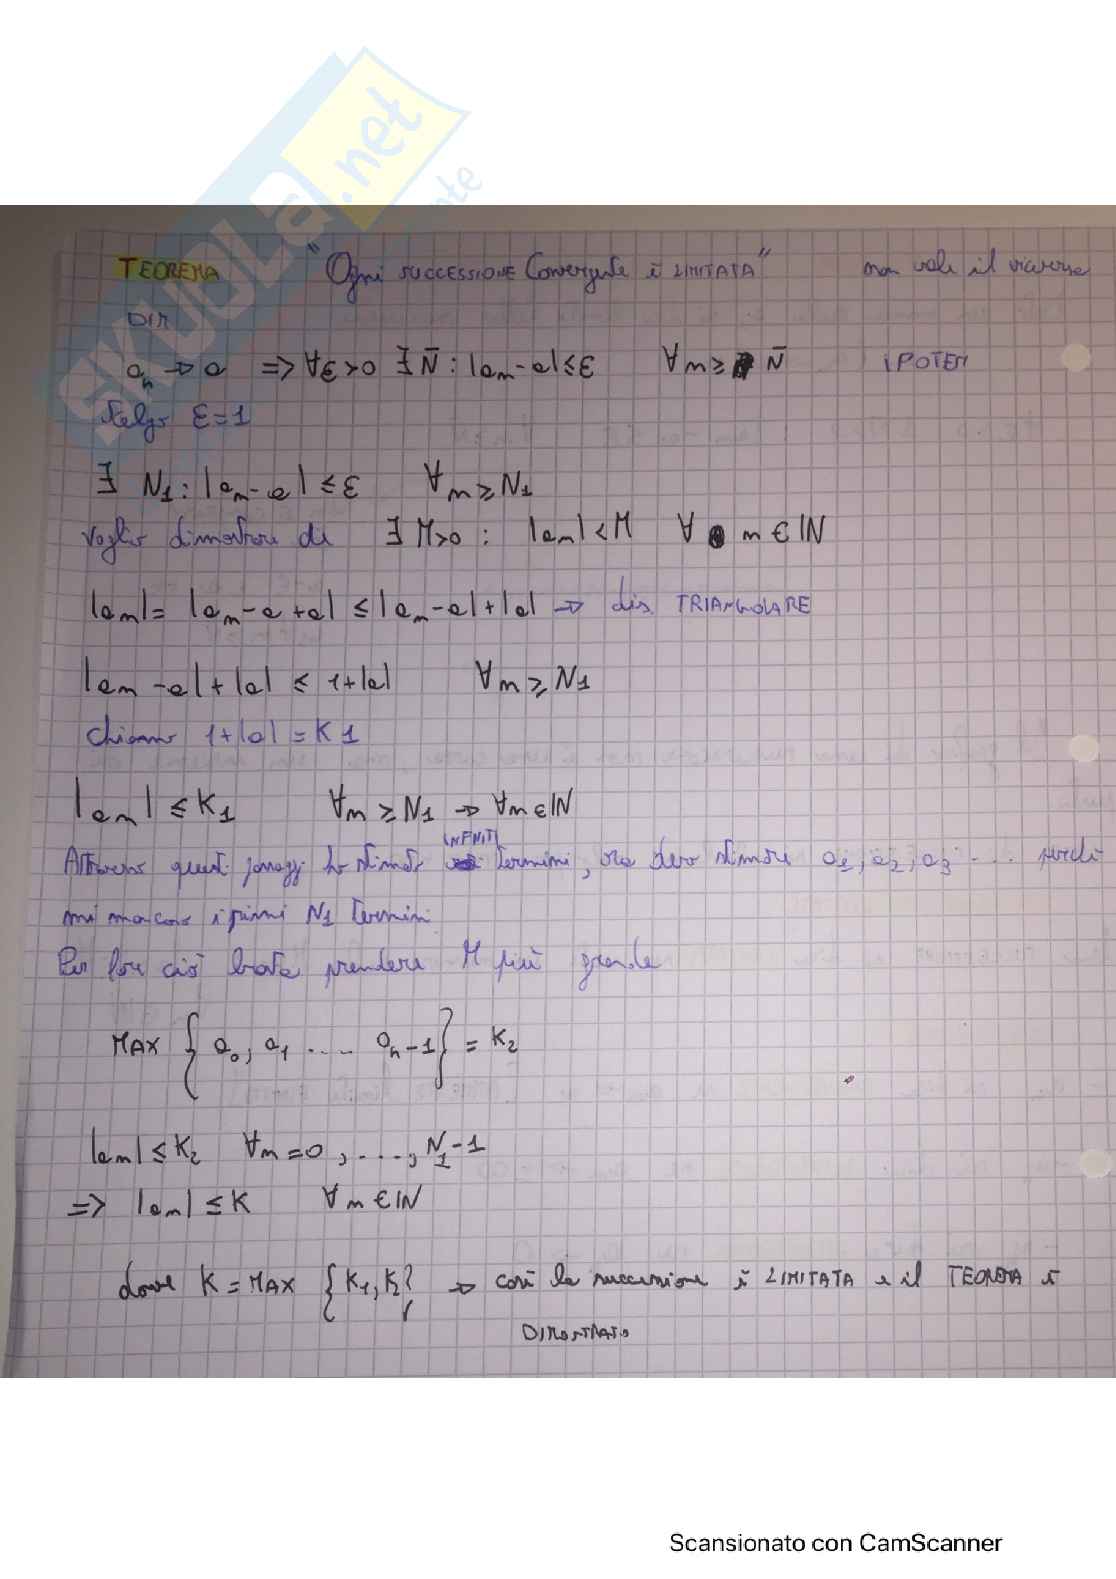 SKUOLa.net
TEOREMA "Ogni SUCCESSIONE Convergente è LIMITATA" non vale il viceversa
DIM
a_n → a => ∀ε>0 ∃ N̄ : |a_n-a|≤ε ∀n≥ N̄ IPOTESI
Scelgo ε=1
∃ N_1 : |a_n-a| ≤ ε ∀n≥N_1
voglio dimostrare che ∃ M>0 : |a_n|<M ∀ n∈ℕ
|a_n|= |a_n-a+a| ≤|a_n-a|+|a| → dis TRIANGOLARE
|a_n-a|+|a| ≤ 1+|a| ∀n≥N_1
Chiamo 1+|a|=K1
|a_n| ≤K_1 ∀n≥N_1 → ∀n∈ℕ
Attraverso questi passaggi ho stimato INFINITI termini, ora devo stimare a_1, a_2, a_3 ... perché
mi mancano i primi N1 termini.
Per fare ciò basta prendere M più grande
MAX { a_0, a_1 .... a_n-1} = K_2
|a_n| ≤K_2 ∀n=0, ...., N_1-1
=> |a_n| ≤K ∀n∈ℕ
dove K=MAX {K_1, K_2} → così la successione è LIMITATA e il TEOREMA è
DIMOSTRATO
Scansionato con CamScanner